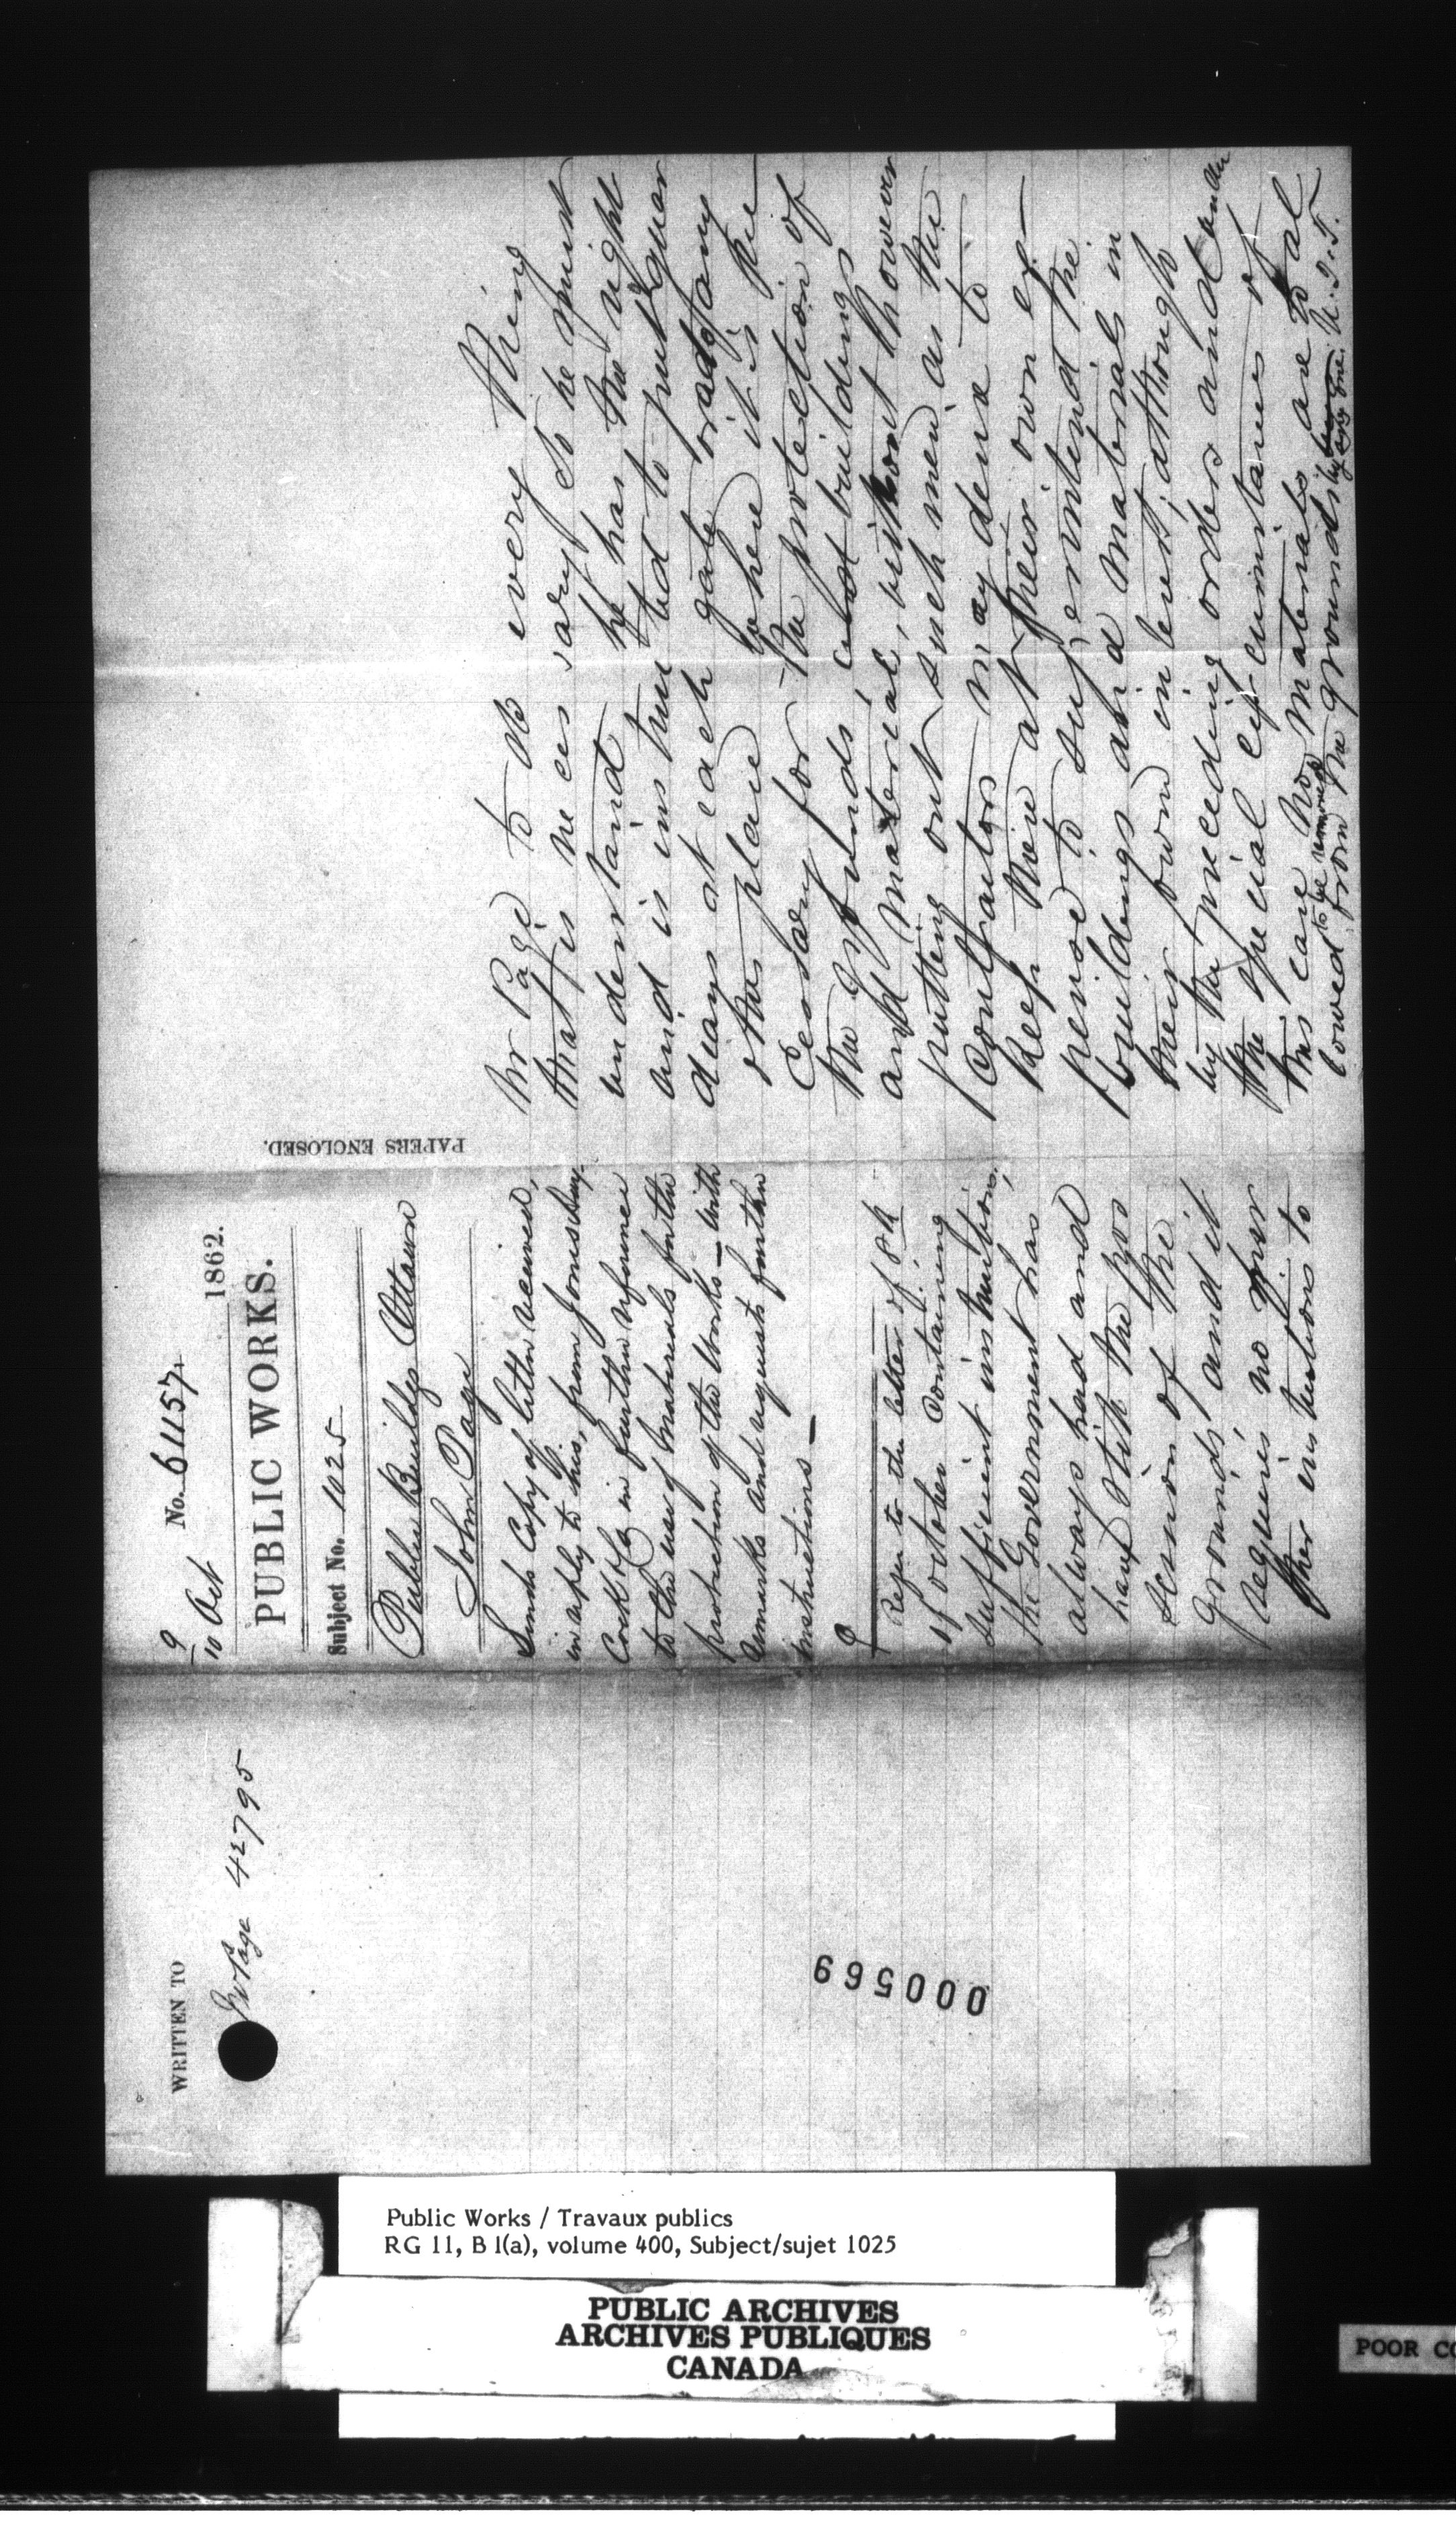 WRITTEN TO
Mr Page 42795
000569
9
10 Oct
No. 61157
1862.
PUBLIC WORKS.
Subject No. 1025
Public Buildgs Ottawa
John Page
Sends Copy of letter received,
in reply to his, from Jones Hay-
cock & Co in further reference
to the use of materials for the
protection of the Works — with
remarks and requests further
instructions —
Refer to the letter of 8th
of october containing
sufficient instructions,
the Government has
always had and
have still the pos
session of the
grounds, and it
requires no fur
ther instructions to
PAPERS ENCLOSED.
Mr Page to do every thing
that is necessary So he must
understand he has the right
and is instructed to put guar
dians at each gate or at any
other place where it is ne
cessary for the protection of
the grounds, and buildings
and material, without however
putting out such men as the
Contractors may desire to
keep there at their own ex-
pense to superintend the
buildings and materials in
their own interest, although
by the preceding orders and under
the special circumstances of
this case no materials are to al
lowed to be removed from the grounds by any one. U.J.T.
Public Works / Travaux publics
RG 11, B 1(a), volume 400, Subject/sujet 1025
PUBLIC ARCHIVES
ARCHIVES PUBLIQUES
CANADA
POOR CO